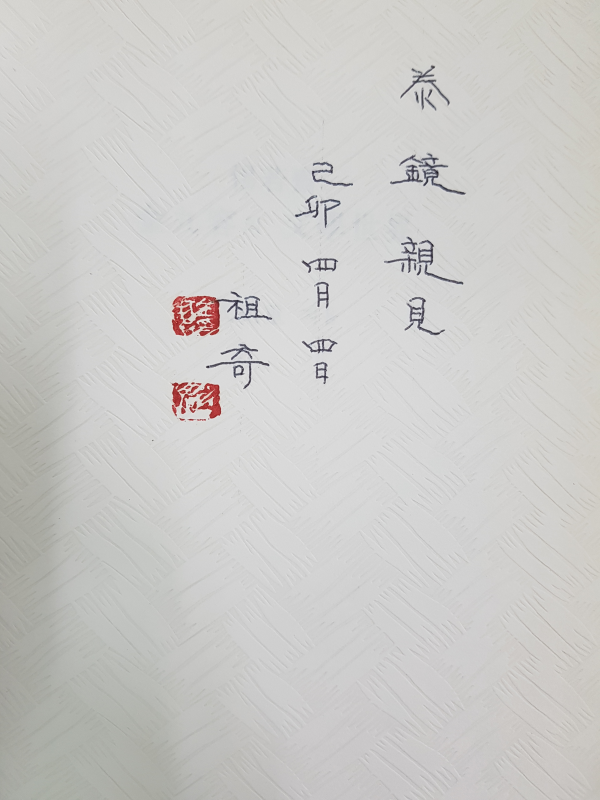 泰鏡親見
己卯四月四日
祖奇